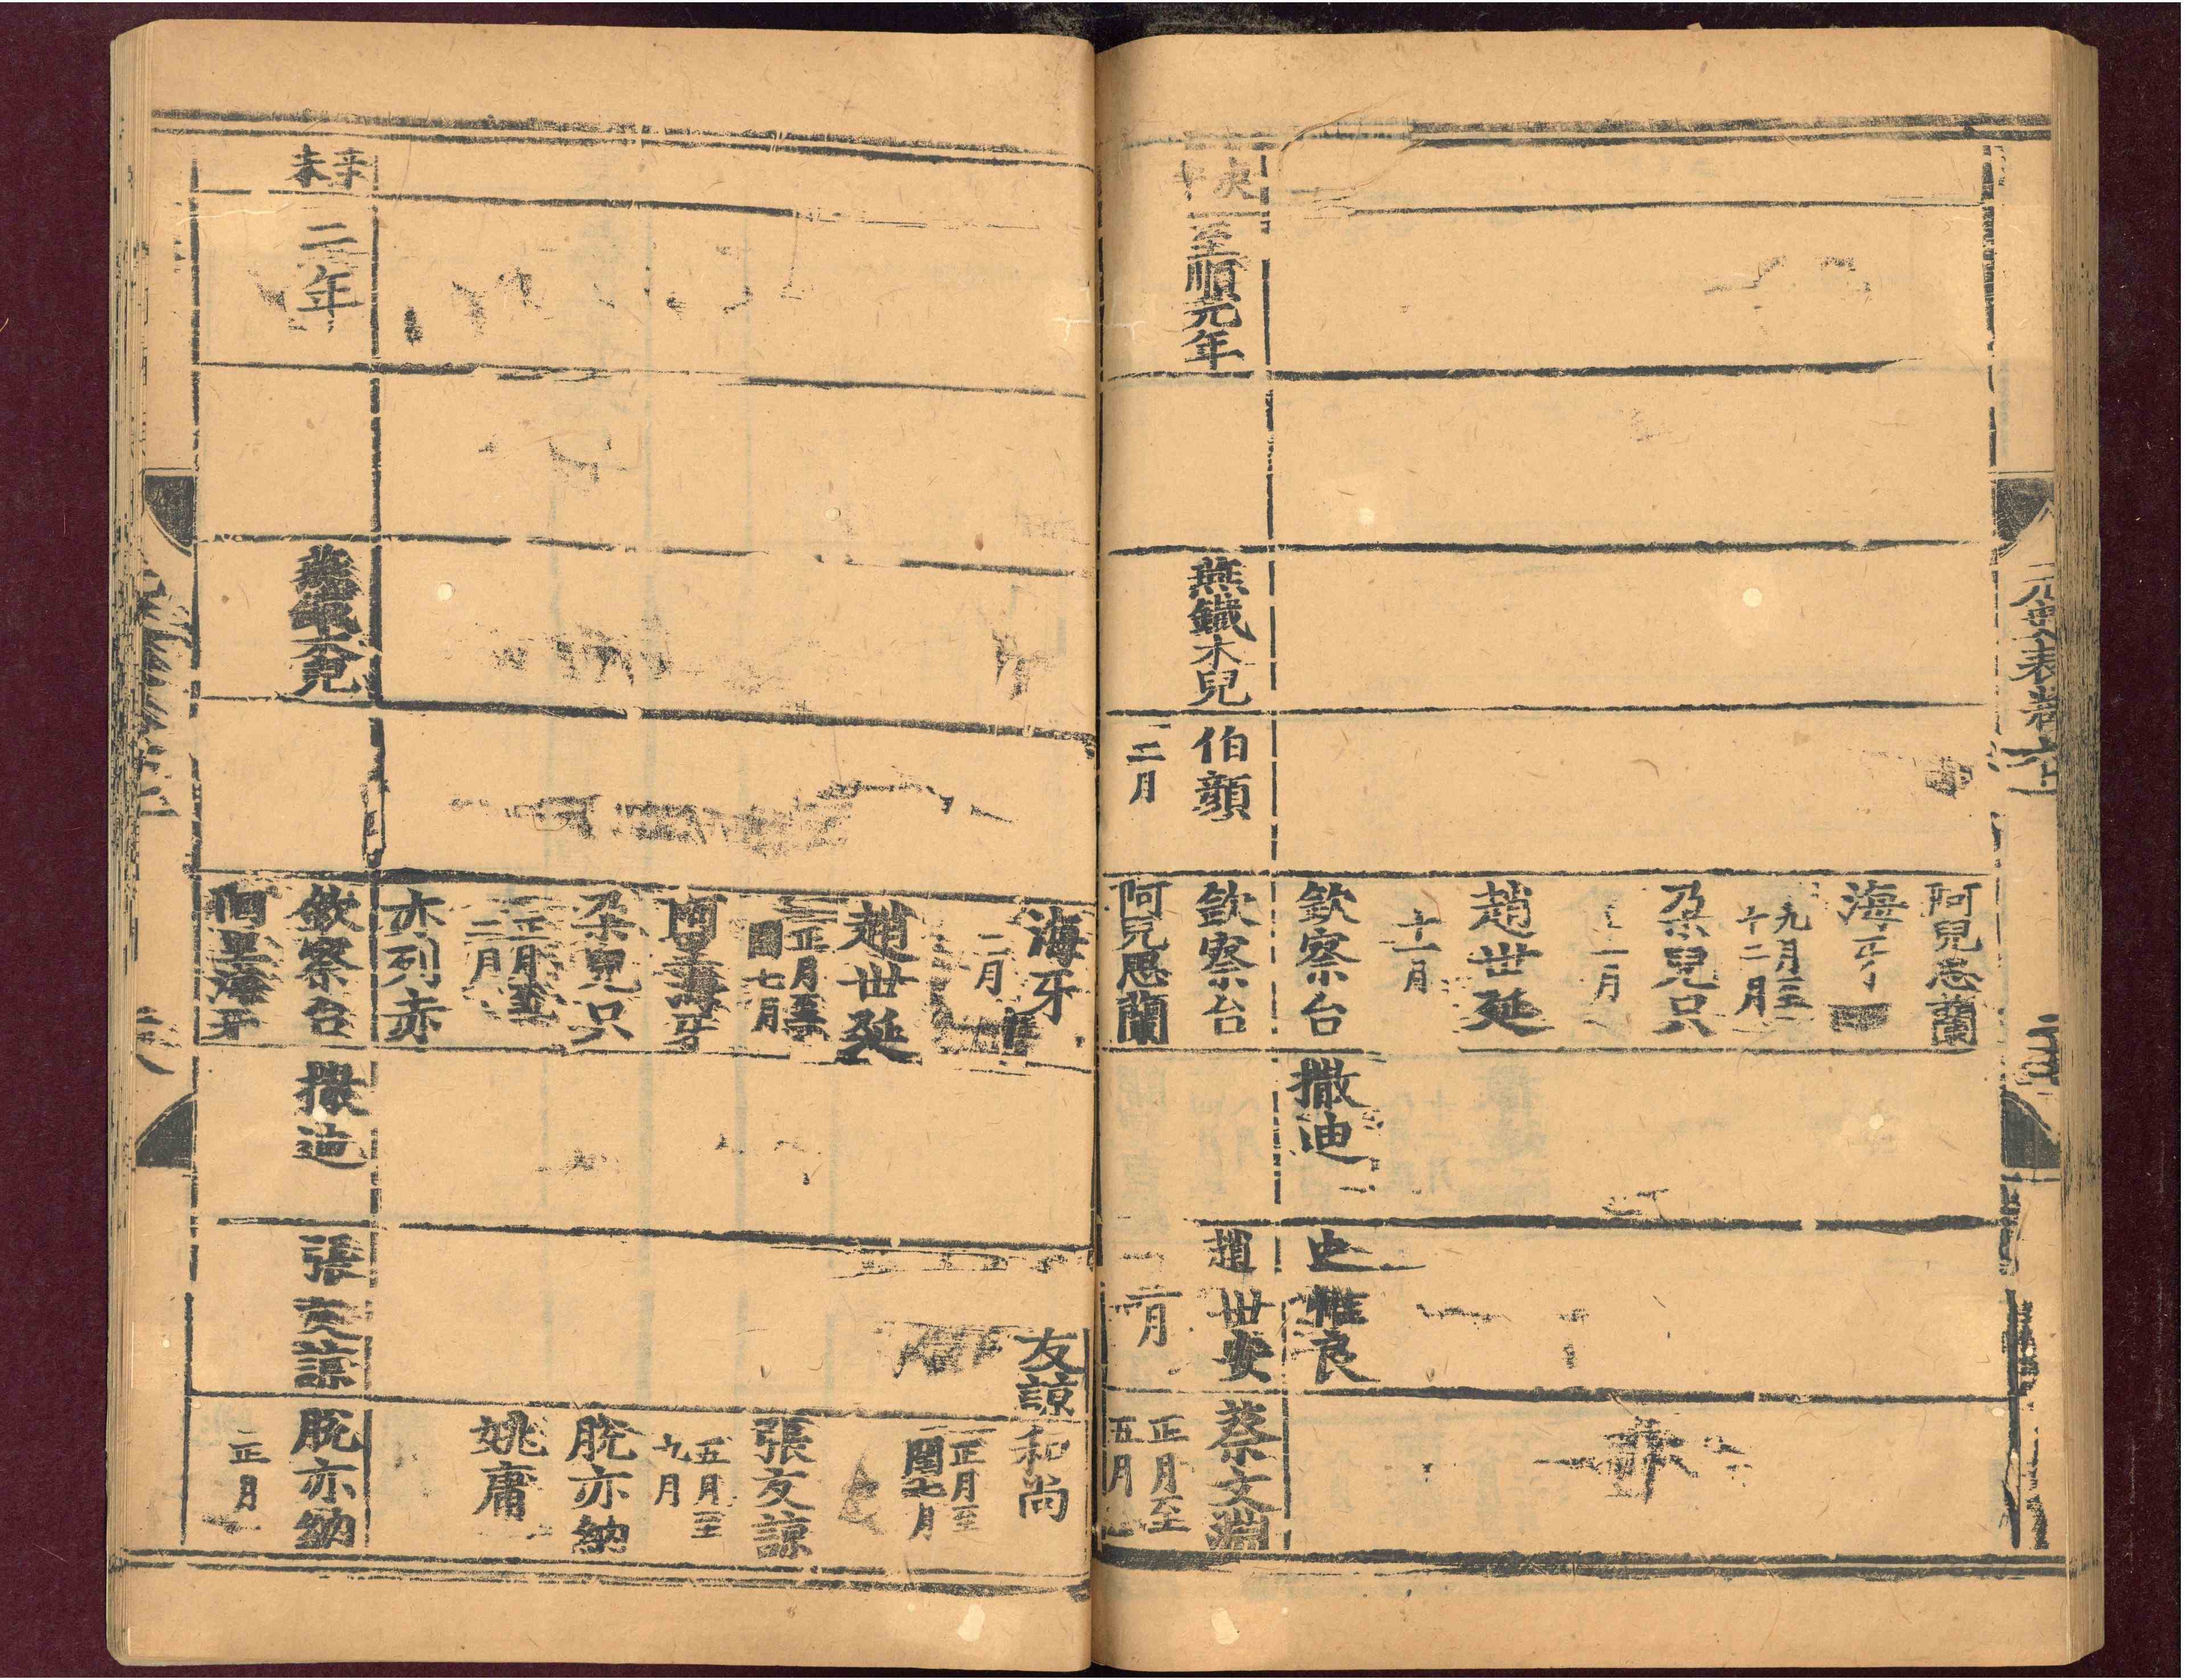 阿兒思蘭
海牙
九月至
十二月
朶兒只
一月
趙世延
十一月
欽察台
撒迪
史惟良
庚
午
至順元年
燕鐵木兒
伯顏
二月
欽察台
阿兒思蘭
趙世安
二月
蔡文淵
正月至
五月
海牙
二月
趙世延
正月至
七月
阿里海牙
朶兒只
正月至
二月
亦列赤
友諒
和尚
正月至
閏七月
張友諒
五月至
九月
脫亦納
姚庸
辛
未
二年
燕鐵木兒
欽察台
阿里海牙
撒迪
張友諒
脫亦納
正月